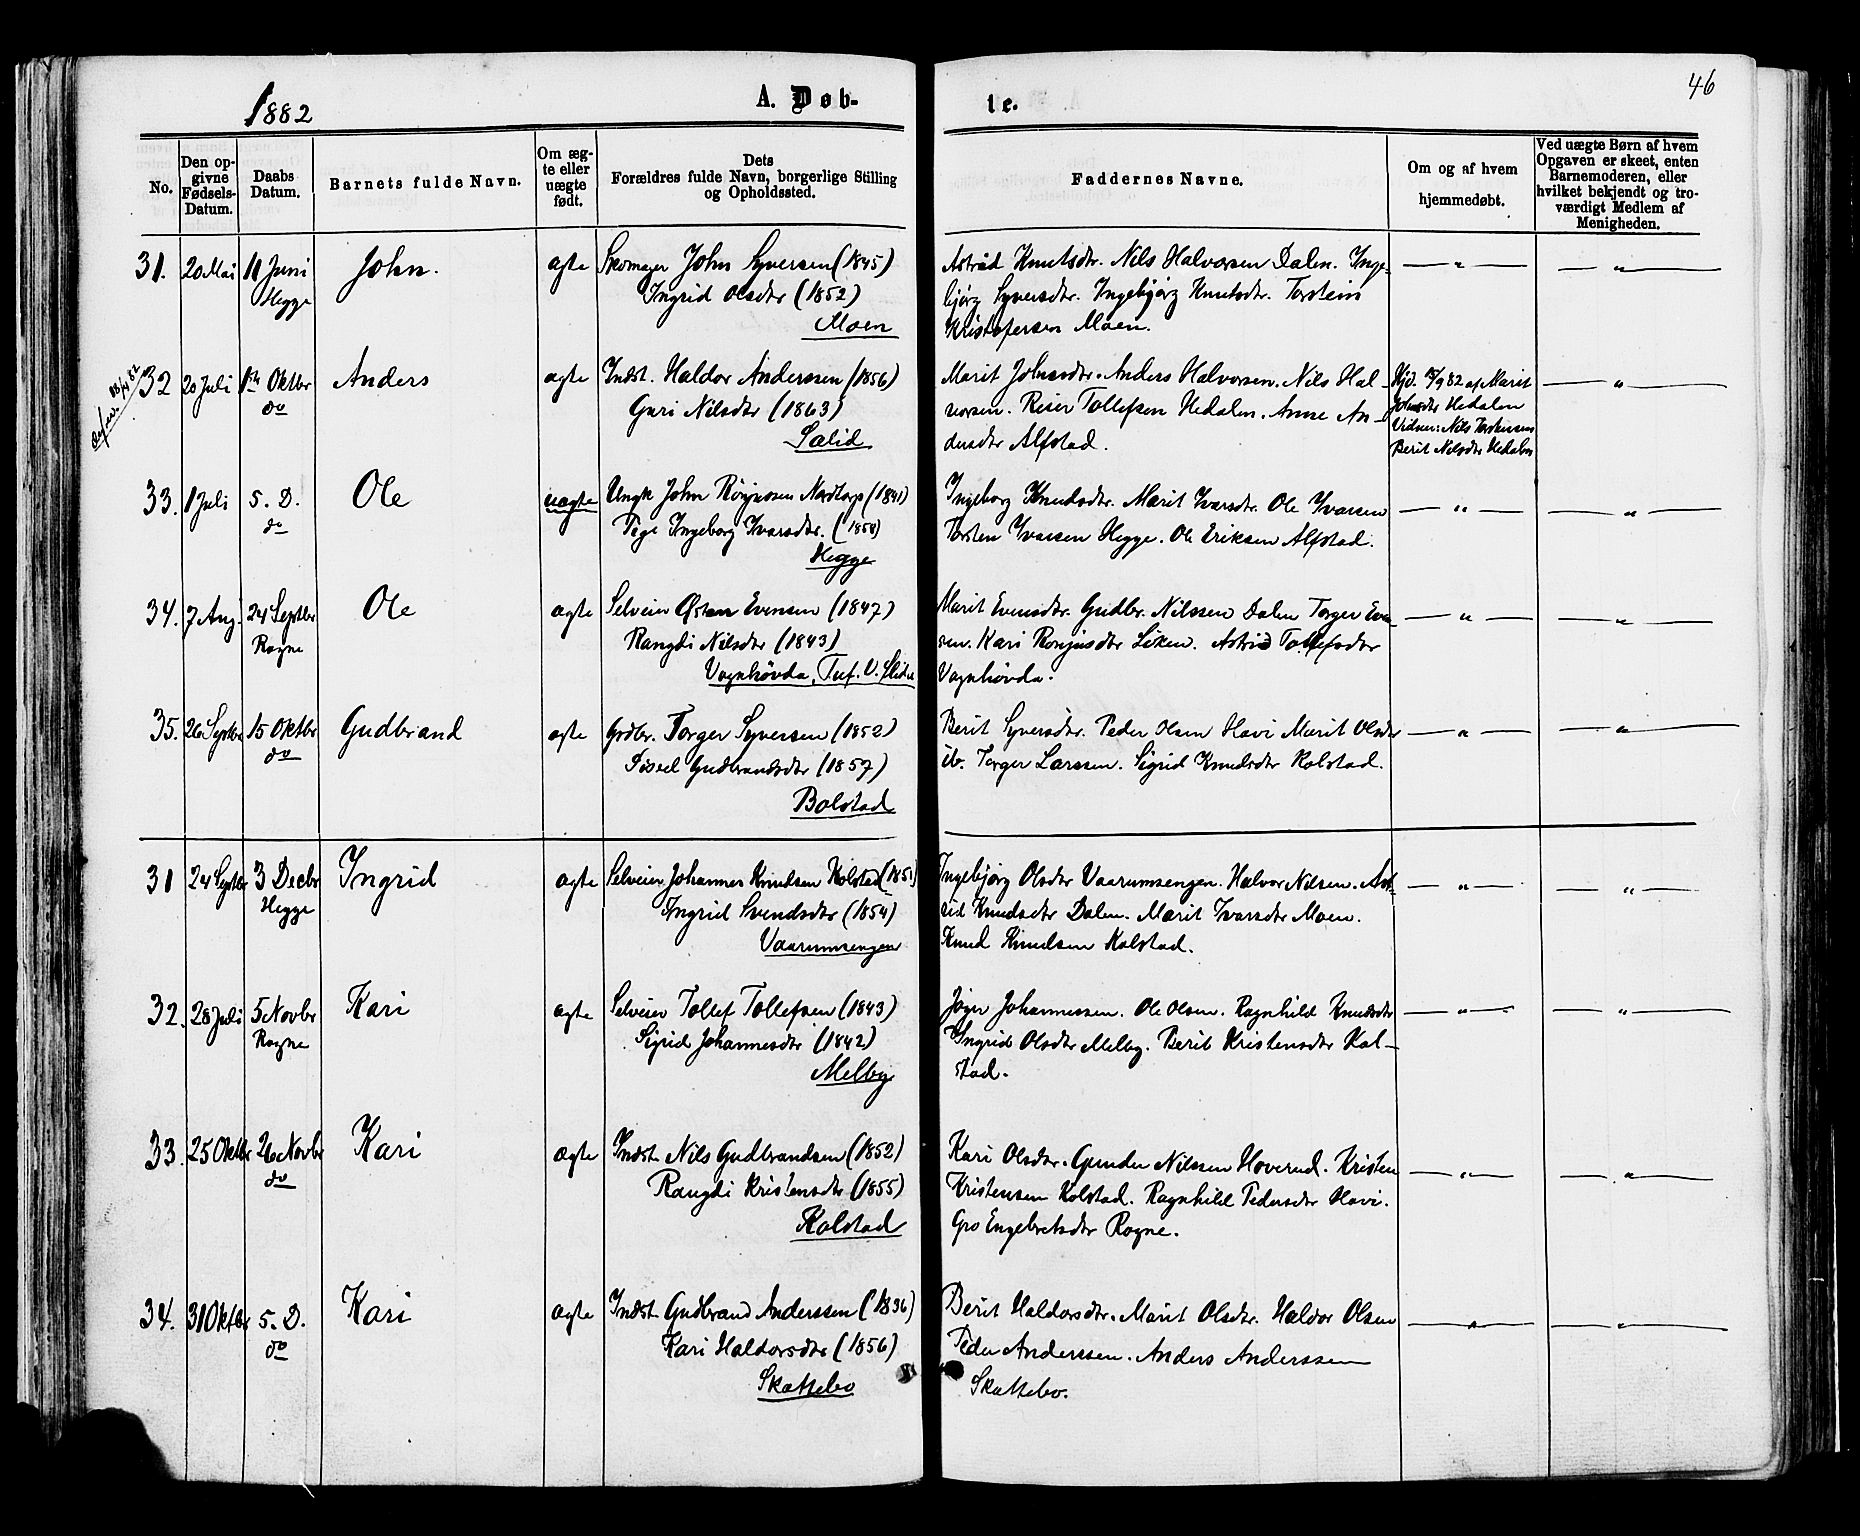 46
1882
A. Døb-
te.
No.
Den op-
givne
Fødsels-
Datum.
Daabs
Datum.
Barnets fulde Navn.
Om æg-
te eller
uægte
født.
Dets
Forældres fulde Navn, borgerlige Stilling
og Opholdssted.
Faddernes Navne.
Om og af hvem
hjemmedøbt.
Ved uægte Børn af hvem
Opgaven er skeet, enten
Barnemoderen, eller
hvilket bekjendt og tro-
værdigt Medlem af
Menigheden.
31. 20 Mai 11 Juni John. ægte Skomager John Syversen (1845)
Hegge Ingrid Olsdtr (1852)
Moen
Astrid Knutsdtr. Nils Halvorsen Dalen. Inge-
bjørg Syversdtr. Ingebjørg Knutsdtr. Torstein
Kristofersen Moen.
32 20 Juli Oktbr Anders ægte Indst. Haldor Anderssen (1856)
do Guri Nilsdtr (1863)
Sælid
Marit Johnsdtr. Anders Halvorsen. Nils Hal-
vorsen. Reier Tollefsen Hedalen. Anne An-
dersdtr Alfstad.
Hjd. 15/9 82 af Marit
Johnsdtr Hedalen
Vidner: Nils Torstensen
Berit Nilsdtr Hedalen
33. 1 Juli 5. D. Ole uægte Ungk John Nordtorp (1841)
do Pige Ingeborg Ivarsdtr. (1858)
Hegge
Ingeborg Knudsdtr. Marit Ivarsdtr. Ole Ivarsen
Torsten Ivarsen Hegge. Ole Eriksen Alfstad.
34. 7 Aug. 24 Septbr Ole ægte Selveier Østen Evensen (1847)
Rogne Rangdi Nilsdtr (1843)
Vognhøvda, V. Slidre
Marit Evensdtr. Gudbr. Nilssen Dalen Torger Even-
sen. Kari Rønjusdtr Liken. Astrid Tollefsdtr
Vognhøvda.
35. 26 Septbr 15 Oktbr Gudbrand ægte Grdbr. Torger Syversen (1852)
do Sissel Gudbrandsdtr (1857)
Bolstad
Berit Syversdtr. Peder Olsen Hovi Marit Olsdtr
ib. Torger Larssen. Sigrid Knudsdtr Rolstad.
31 24 Septbr 3 Decbr Ingrid ægte Selveier Johannes Knudsen Kolstad (1851)
Hegge Ingrid Svendsdtr (1854)
Vaarumsengen
Ingebjørg Olsdtr Vaarumsengen. Halvor Nilsen. Ast-
rid Knudsdtr Dalen. Marit Ivarsdtr Moen.
Knud Knudsen Kolstad.
32. 28 Juli 5 Novbr Kari ægte Selveier Tollef Tollefsen (1843)
Rogne Sigrid Johannesdtr (1842)
Melby
Jøgn Johannessen. Ole Olsen. Ragnhild Knudsdtr
Ingrid Olsdtr Melby. Berit Kristensdtr Kol-
stad.
33. 25 Oktbr 26 Novbr Kari ægte Indst. Nils Gudbrandsen (1852)
do Rangdi Kristensdtr (1855)
Kolstad
Kari Olsdtr. Gunder Nilssen Hoverud. Kristen
Kristensen Kolstad. Ragnhild Pedersdtr Hovi.
Gro Engebretsdtr Rogne.
34. 31 Oktbr 5. D. Kari ægte Indst. Gudbrand Anderssen (1836)
do Kari Haldorsdtr (1856)
Skattebo
Berit Haldorsdtr. Marit Olsdtr. Haldor Olsen
Peder Anderssen. Anders Anderssen
Skattebo.